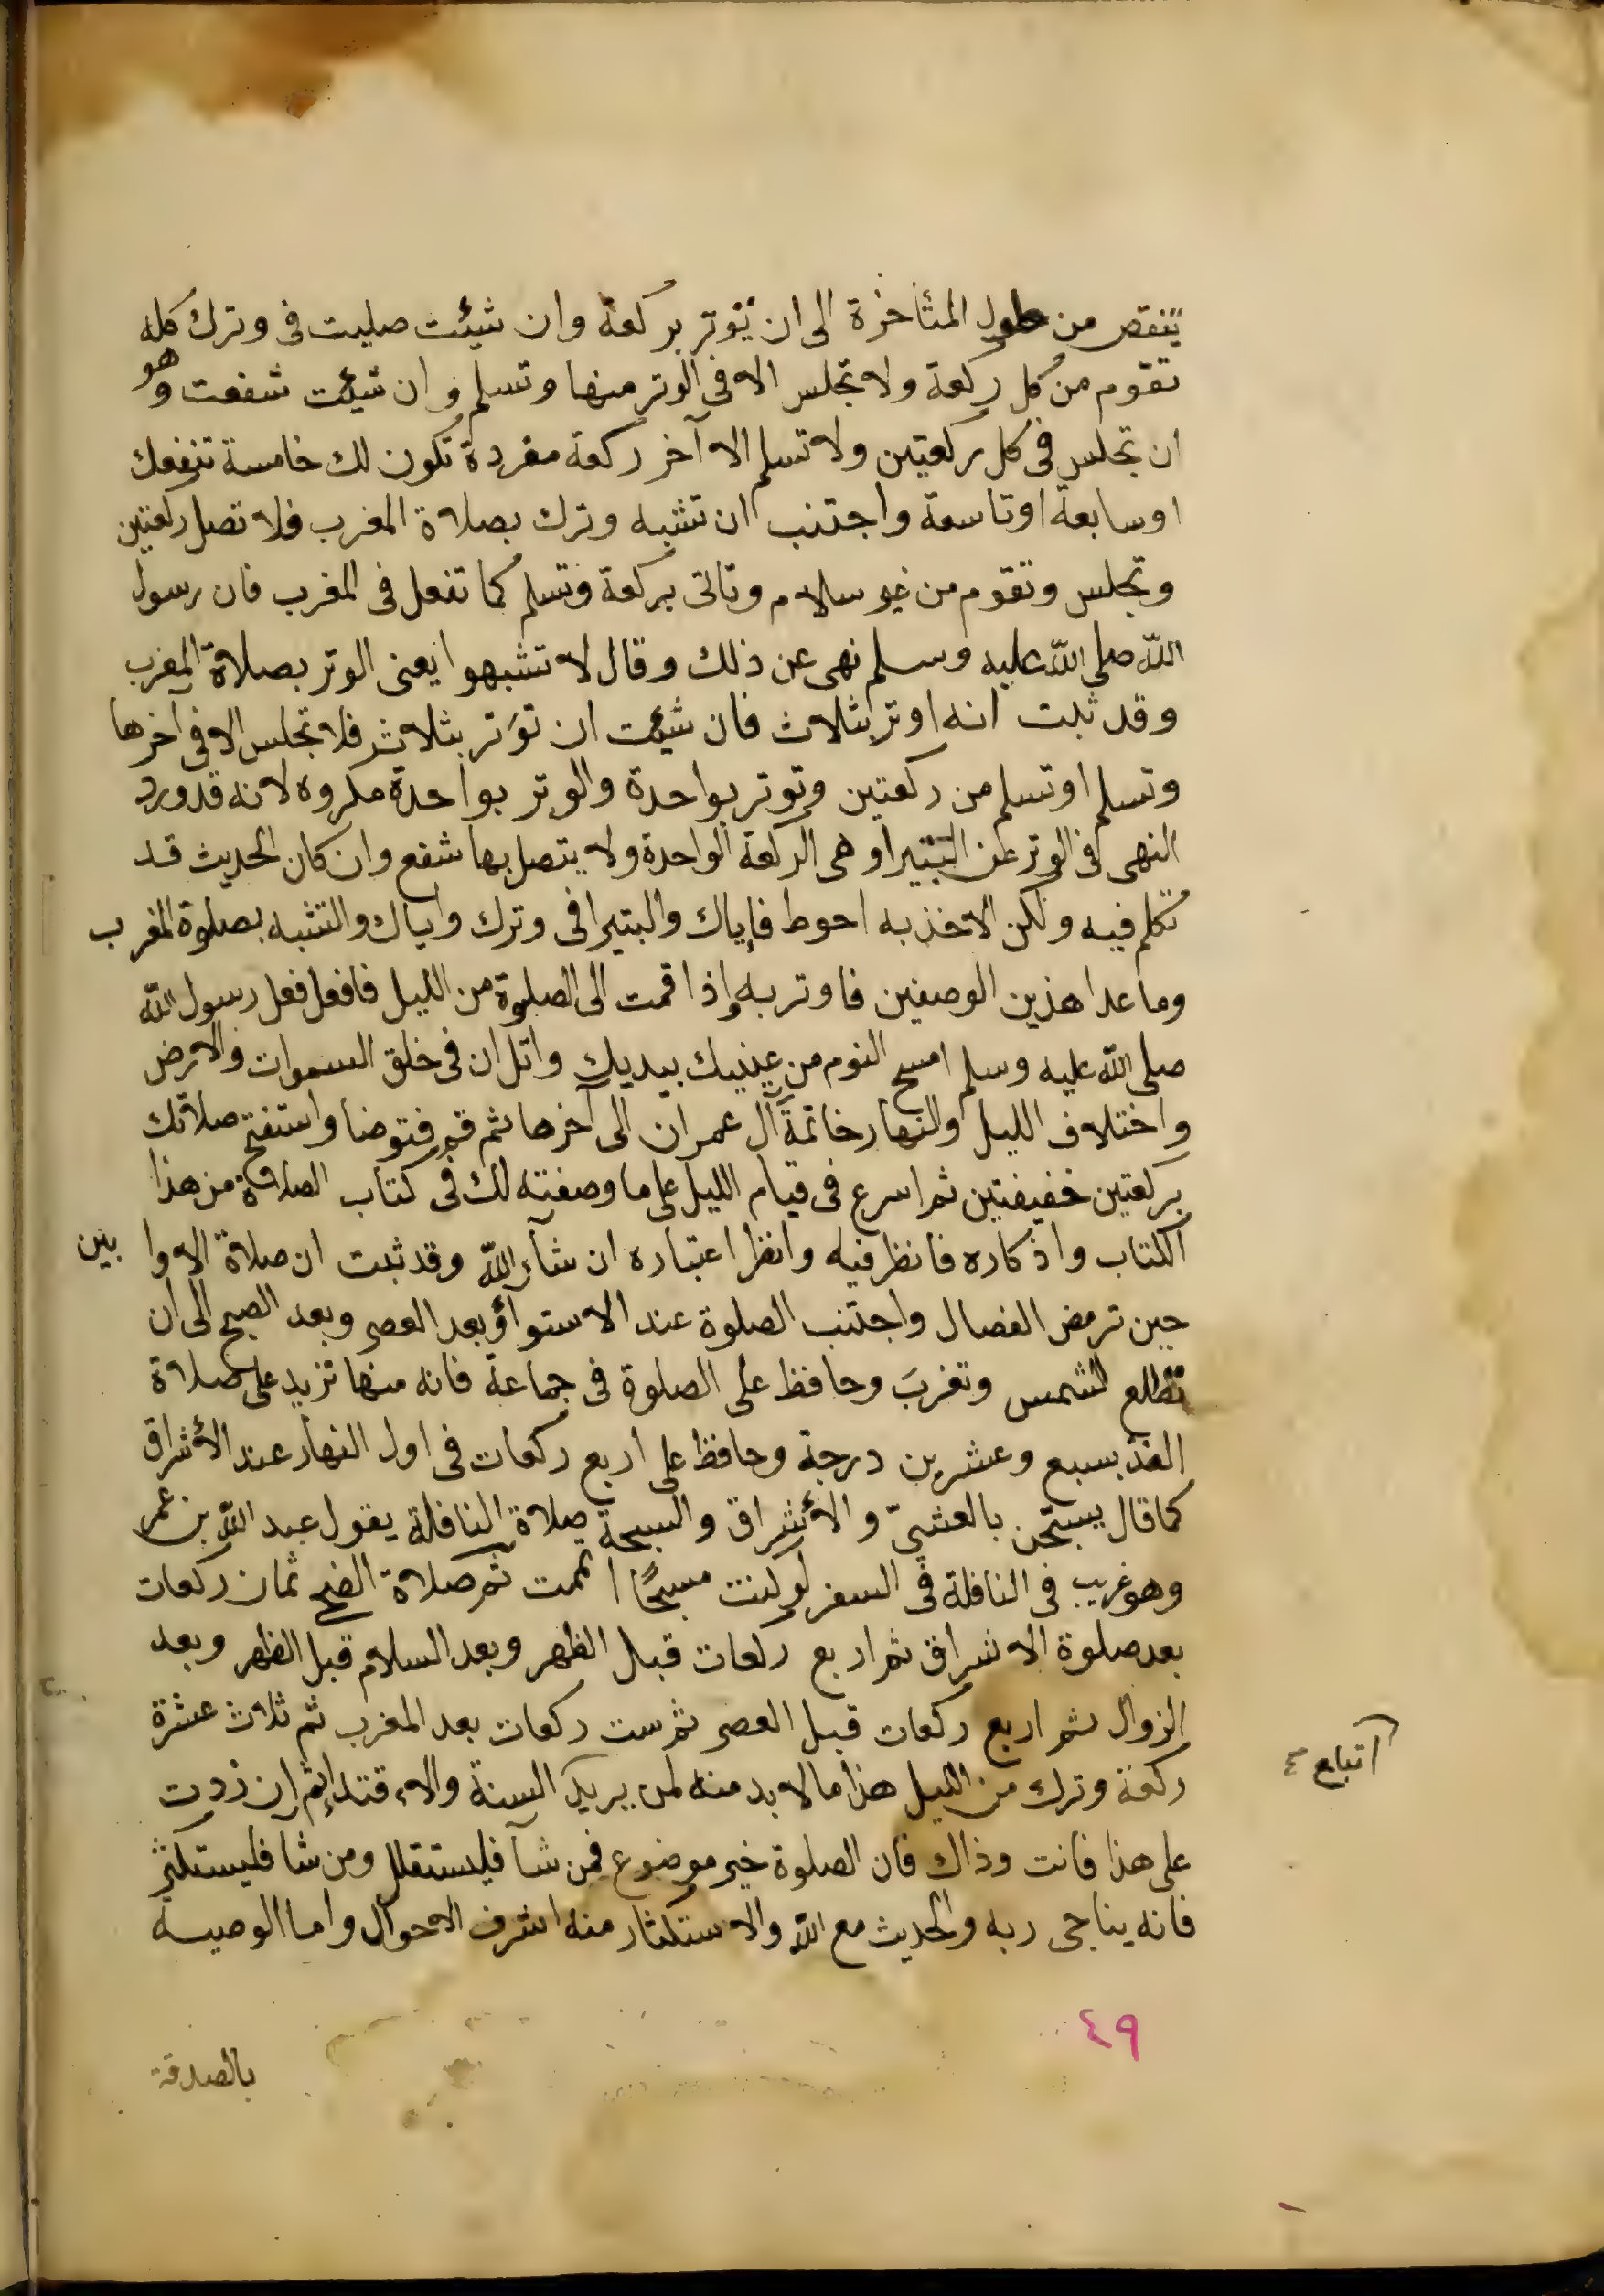 تنقص من طول المتأخرة الى ان توتر بركعة وان شئت صليت فى وترك كله
تقوم من كل ركعة ولا تجلس الا فى الوتر منها وتسلم وان شئت شفعت وهو
ان تجلس فى كل ركعتين ولا تسلم الا آخر ركعة مفردة تكون لك خامسة تنفعك
او سابعة او تاسعة واجتنب ان تشبه وترك بصلاة المغرب فلا تصل ركعتين
وتجلس وتقوم من غير سلام وتاتى بركعة وتسلم كما تفعل فى المغرب فان رسول
الله صلى الله عليه وسلم نهى عن ذلك وقال لا تشبهوا يعنى الوتر بصلاة المغرب
وقد ثبت انه اوتر بثلاث فان شئت ان توَتر بثلاث فلا تجلس الا فى اخرها
وتسلم او تسلم من ركعتين وتوتر بواحدة والوتر بواحدة مكروه لانه قد ورد
النهى فى الوتر عن البتيرا وهى الركعة الواحدة ولا يتصل بها شفع وان كان الحديث قد
تكلم فيه ولكن الاخذ به احوط فإياك والبتيرا فى وترك واياك والتشبه بصلوة المغرب
وما عدا هذين الوصفين فاوتر به واذا قمت الى الصلوة من الليل فافعل فعل رسول الله
صلى الله عليه وسلم امسح النوم من عينيك بيديك واتل ان فى خلق السموات والارض
واختلاف الليل والنهار خاتمة آل عمران الى آخرها ثم قم فتوضا واستفتح صلاتك
بركعتين خفيفتين ثم اسرع فى قيام الليل على ما وصفته لك فى كتاب الصلاة من هذا
الكتاب واذكاره فانظر فيه وانظر اعتباره ان شآء الله وقد ثبت ان صلاة الاوابين
حين ترمض الفصال واجتنب الصلوة عند الاستوآؤ بعد العصر وبعد الصبح الى ان
تطلع الشمس وتغربَ وحافظ على الصلوة فى جماعة فانه منها تزيد على صلاة
الفذ بسبع وعشرين درجة وحافظ على اربع ركعات فى اول النهار عند الأشراق
كما قال يسبّحن بالعشىّ والأشراق والسبحة صلاة النافلة يقول عبد الله بن عمر
وهو غريب فى النافلة فى السفر لو كنت مسبحًا اتممت ثم صلاة الضحى ثمان ركعات
بعد صلوة الاشراق ثم اربع ركعات قبل الظهر وبعد السلام قبل الظهر وبعد
الزوال ثم اربع ركعات قبل العصر ثم ست ركعات بعد المغرب ثم ثلاث عشرة
ركعة وترك من الليل هذا مالا بد منه لمن يريد السنة والاقتدا ثم إن زدت
اتباع
على هذا فانت وذاك فان الصلوة خير موضوع فمن شآ فليستقلل ومن شا فليستكثر
فانه يناجى ربه والحديث مع الله والاستكثار منه اشرف الاحوال واما الوصية
٤٩
بالصدقة